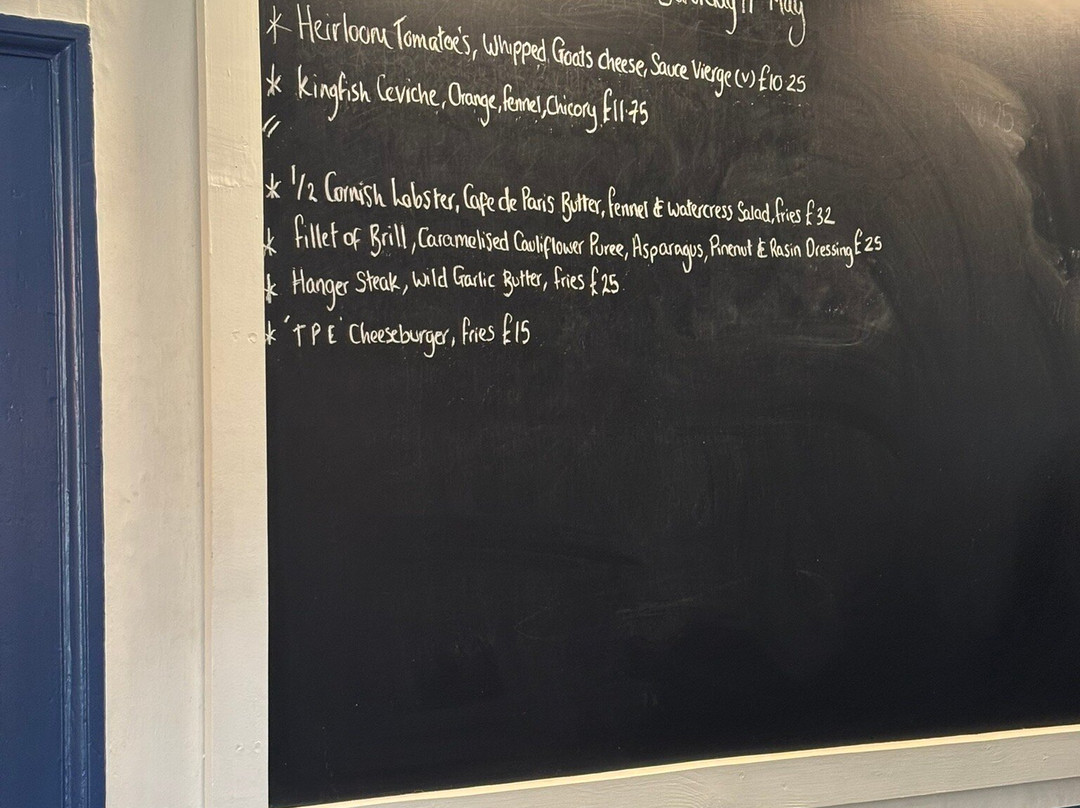 May
* Heirloom Tomatoe's, Whipped Goats cheese, Sauce Vierge (v) £10.25
* Kingfish Ceviche, Orange, fennel, Chicory £11.75
* 1/2 Cornish Lobster, Cafe de Paris Butter, fennel & watercress Salad, fries £32
* fillet of Brill, Caramelised Cauliflower Puree, Asparagus, Pinenut & Rasin Dressing £25
* Hanger Steak, Wild Garlic Butter, fries £25
* 'TPE' Cheeseburger, fries £15